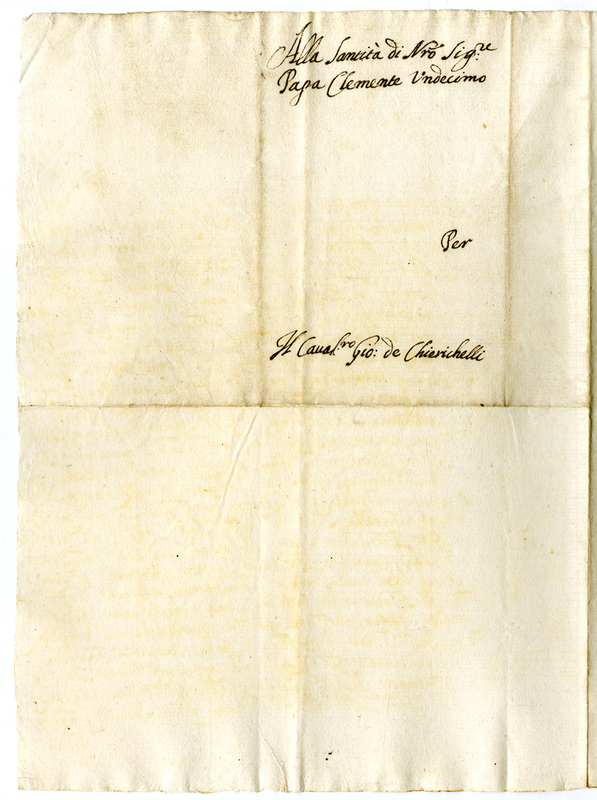 Alla Santità di Nrõ Sigre:
Papa Clemente Undecimo
Per
Il Caual:ro Gio: de Chierichelli